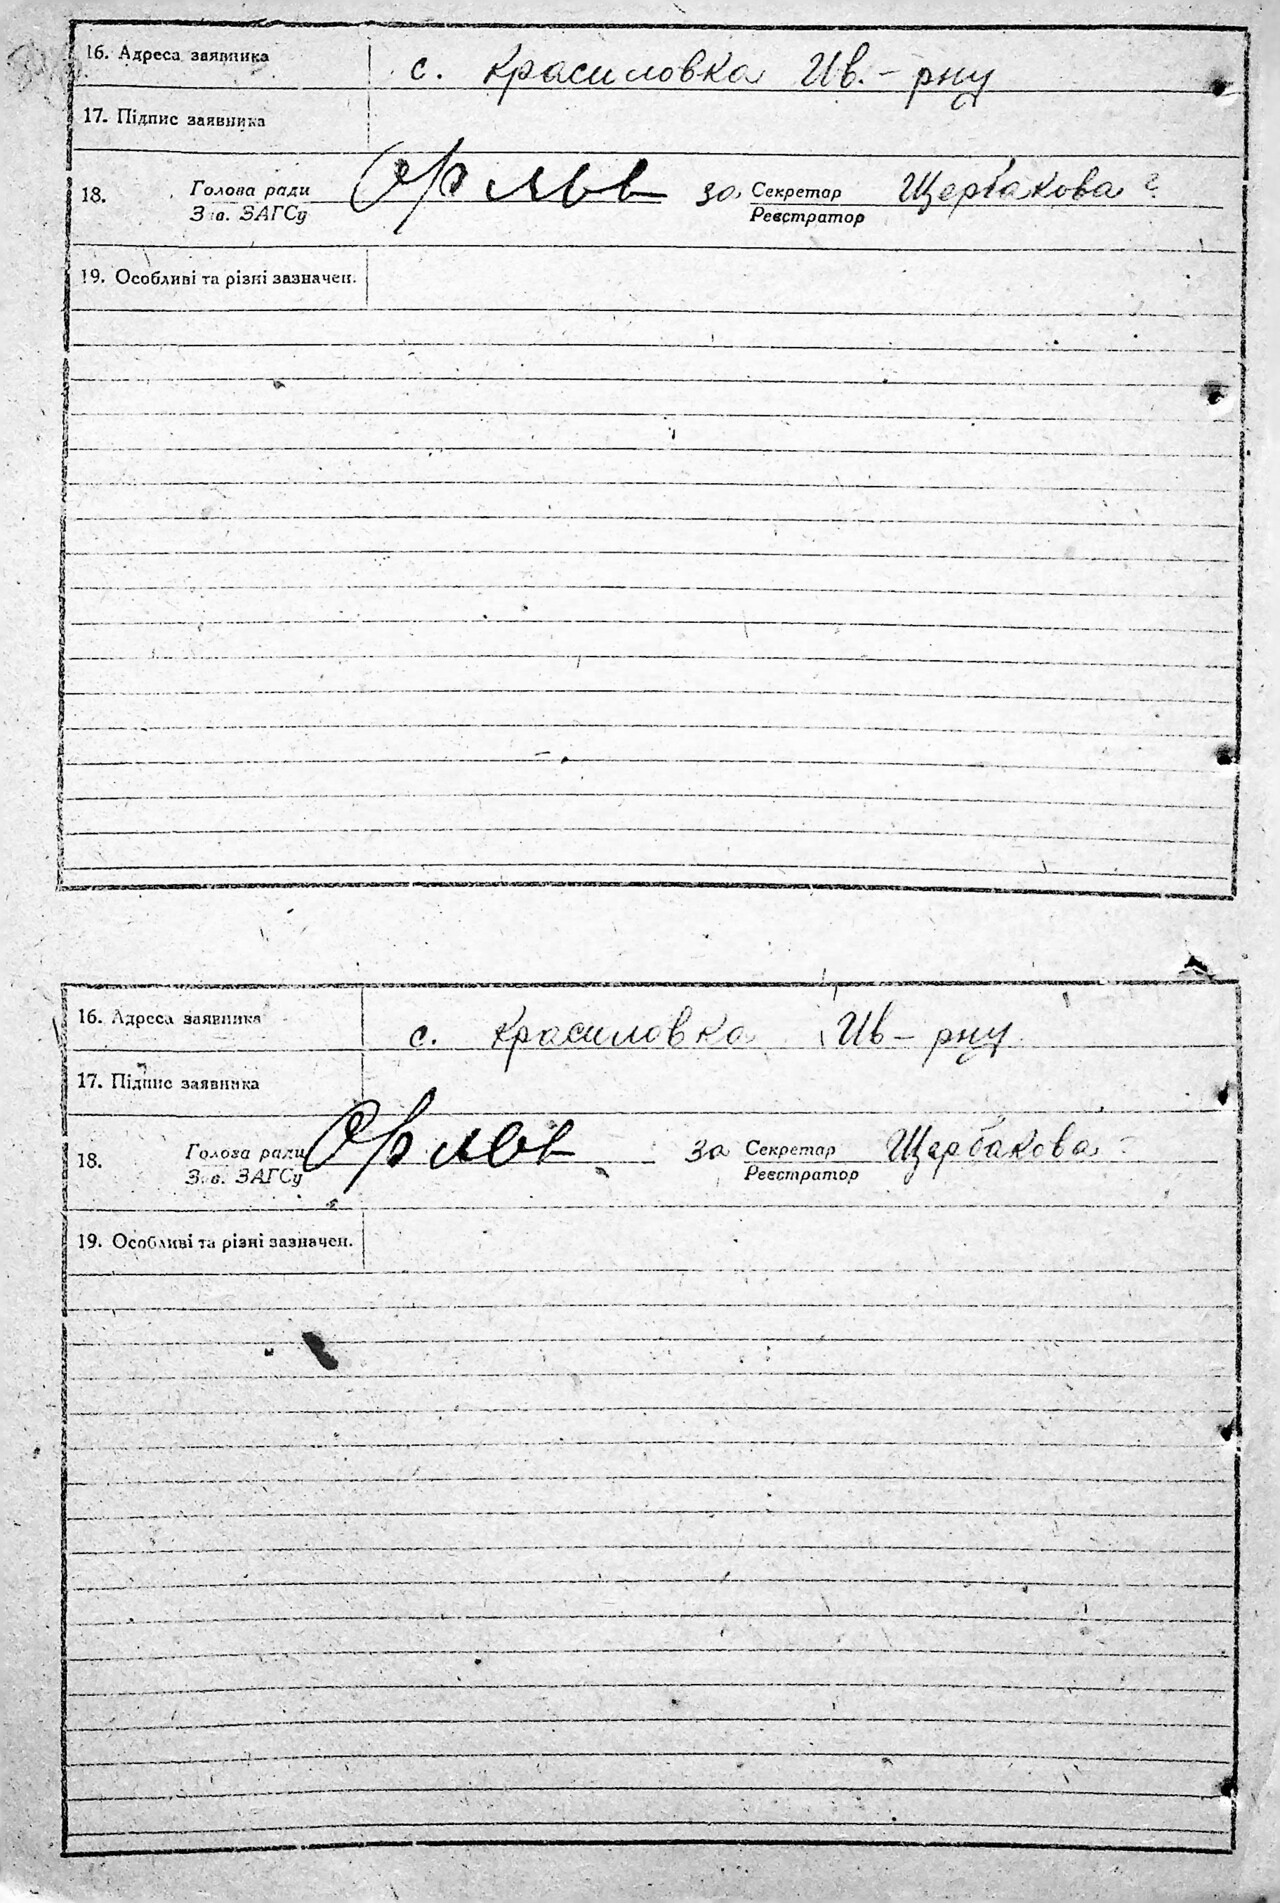 16. Адреса заявника с. Красиловка Ив.-рну
17. Підпис заявника
18. Голова ради Орлов за Секретар Щербакова
Зав. ЗАГСу Реєстратор
19. Особливі та різні зазначен.
16. Адреса заявника с. Красиловка Ив-рну
17. Підпис заявника
18. Голова ради Орлов за Секретар Щербакова
Зав. ЗАГСу Реєстратор
19. Особливі та різні зазначен.